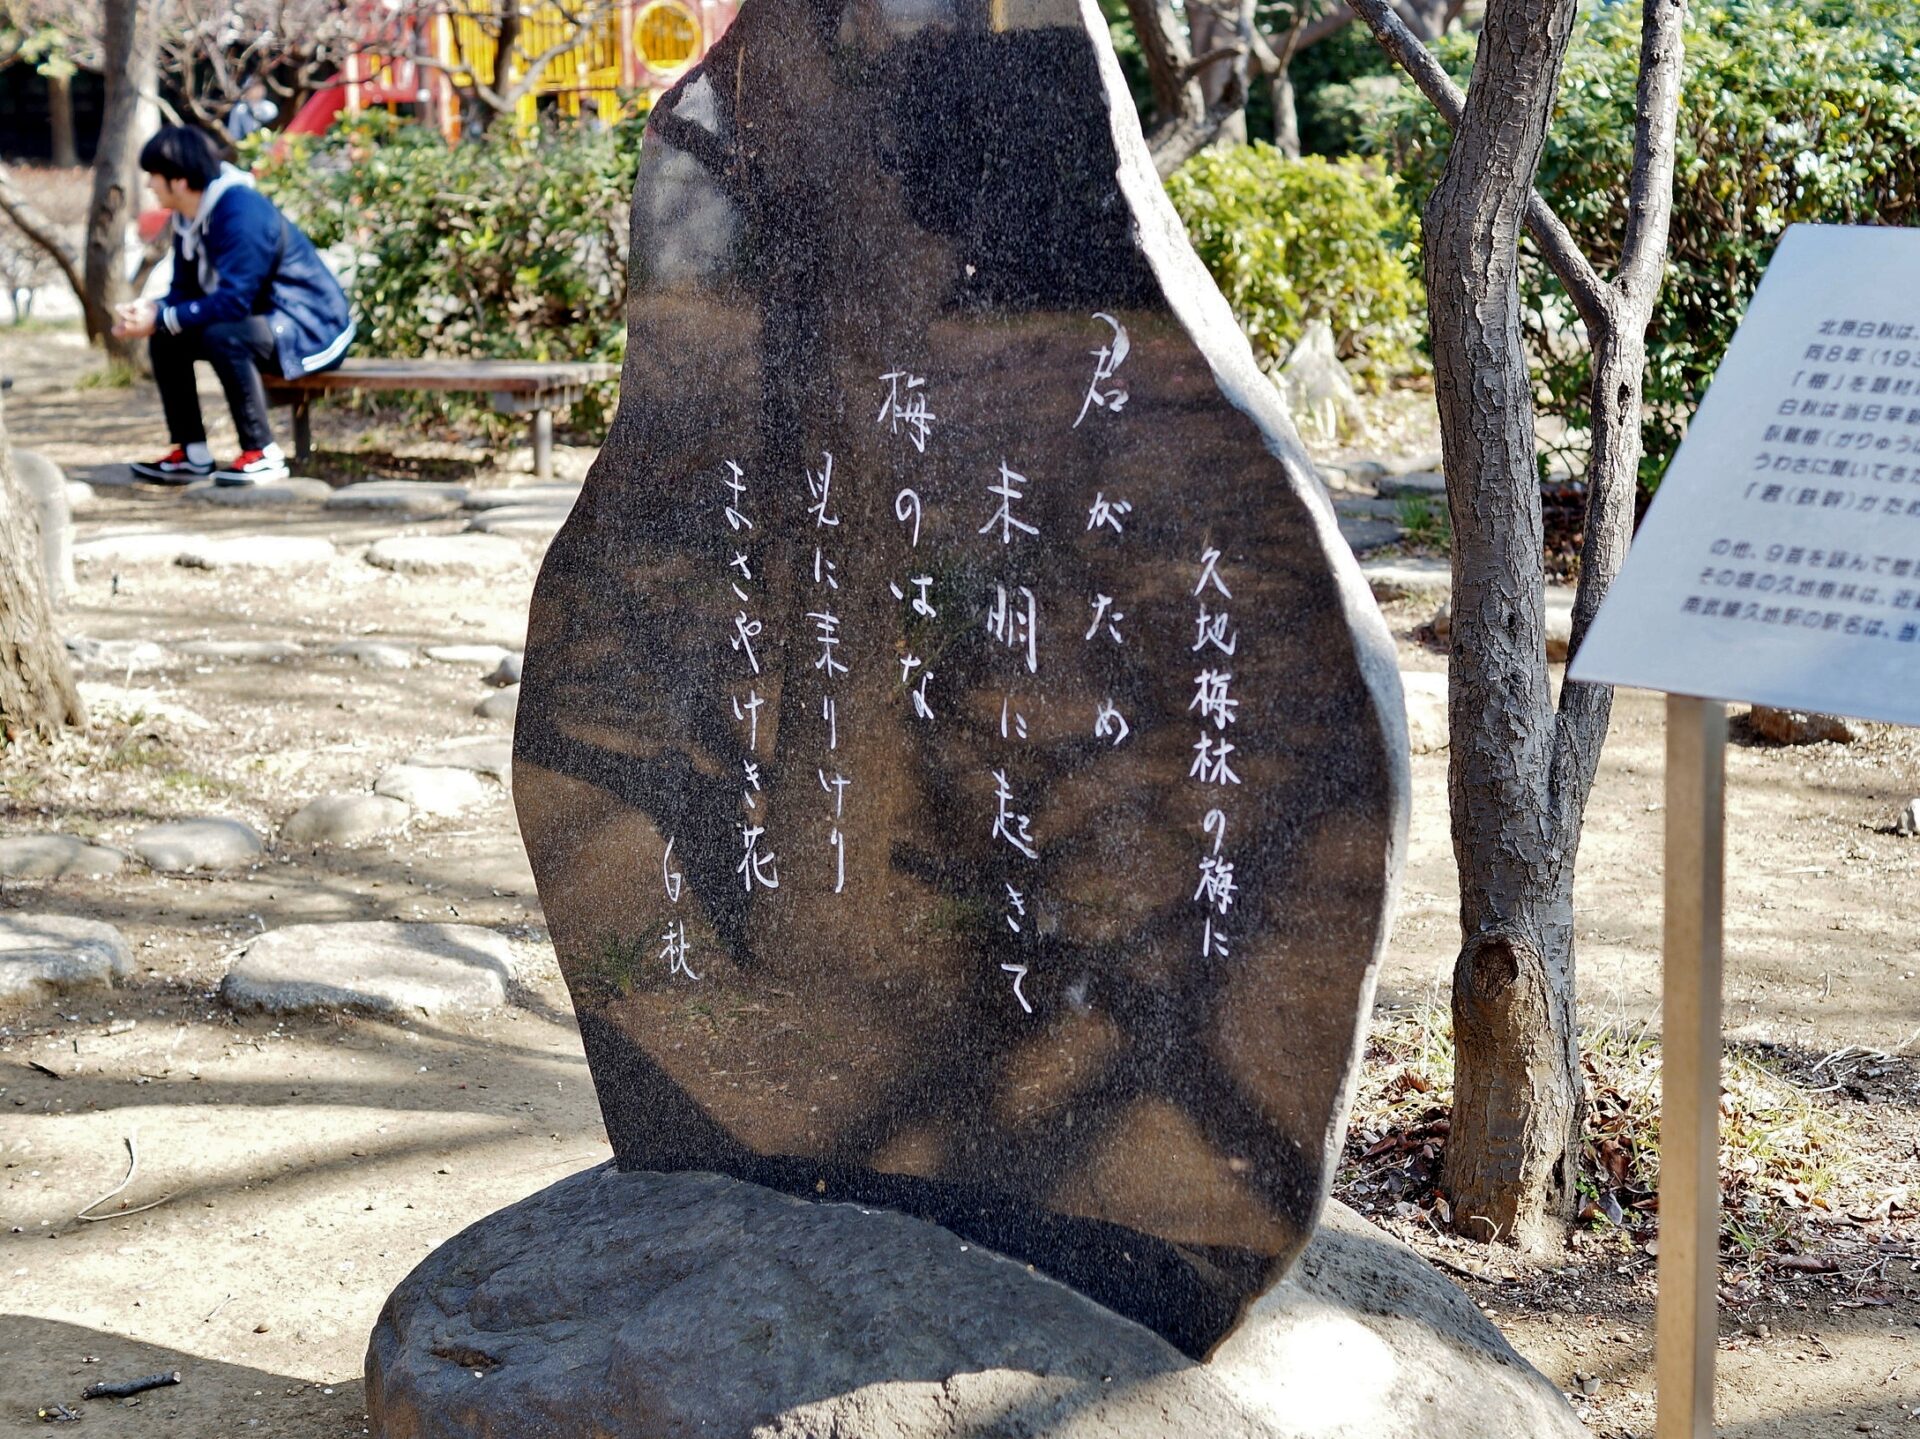 久地梅林の梅に
君がため
未明に起きて
梅のはな
見に来りけり
まさやけき花
白秋
北原白秋は、
同8年(193
「梅」を題材
白秋は当日早朝
臥龍梅(がりゅう
うわさに聞いてきた
「君(鉄幹)がため
の他、9首を詠んで
その頃の久地梅林は、近
南武線久地駅の駅名は、当